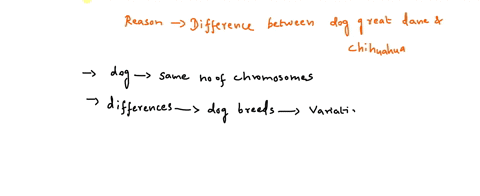 Reason → Difference between dog great dane &
chihuahua
→ dog → same no of chromosomes
→ differences → dog breeds → Variati